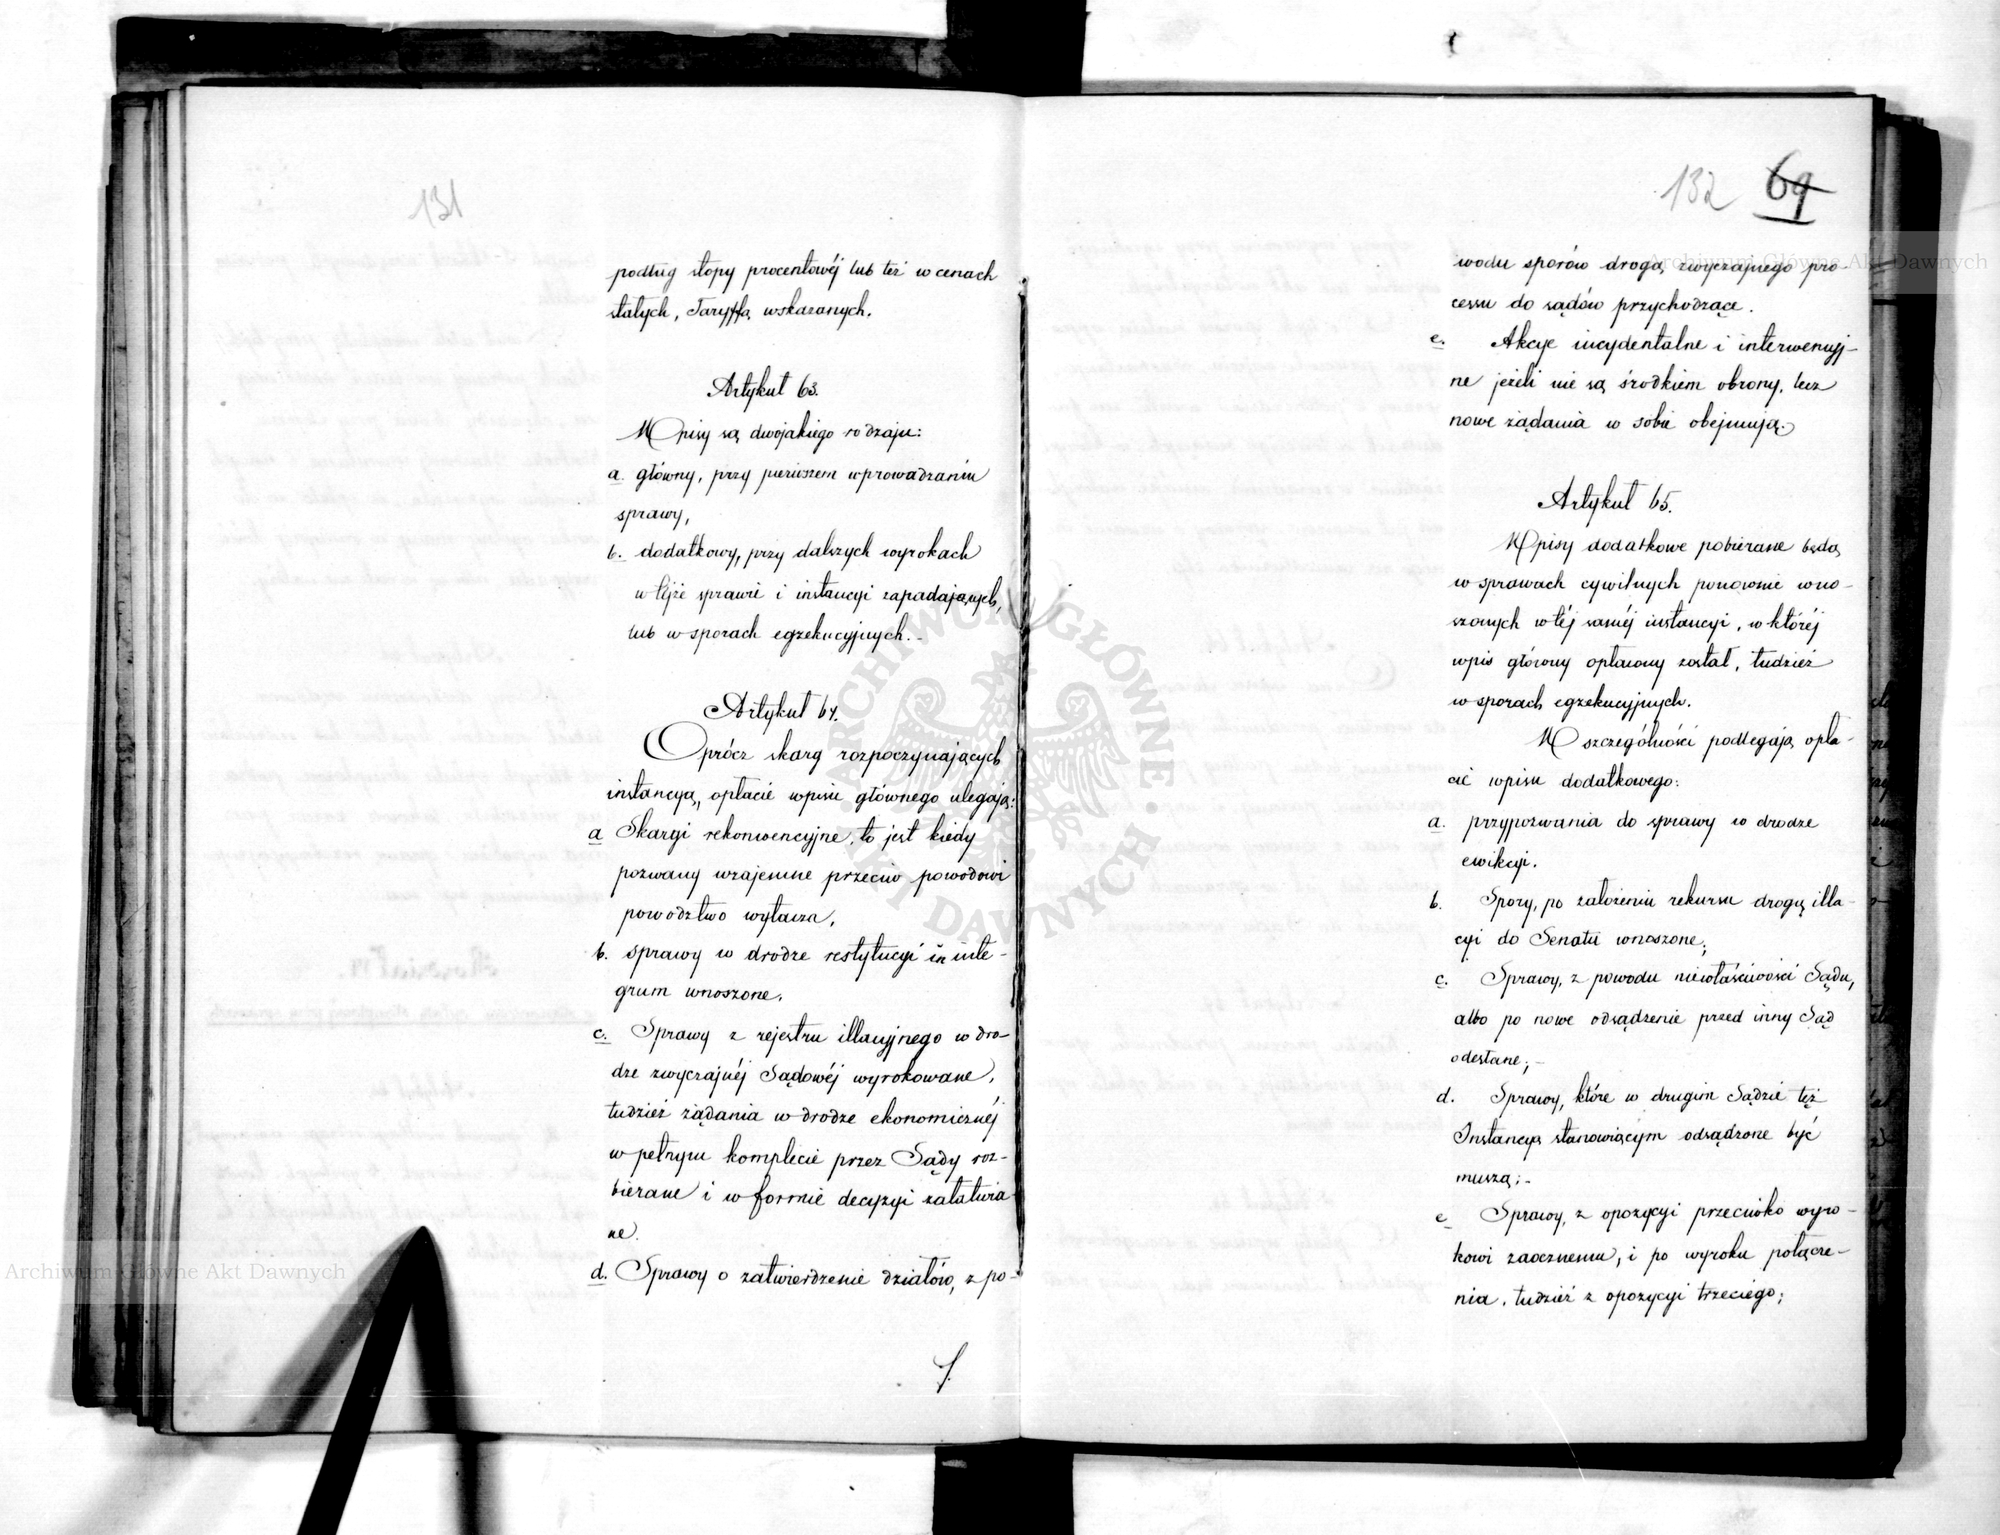 131
podług stopy procentowéj lub też w cenach
stałych, Taryffą wskazanych.
Artykuł 63.
Wpisy są dwojakiego rodzaju:
a. główny, przy pierwszem wprowadzeniu
sprawy,
b. dodatkowy, przy dalszych wyrokach
w tejże sprawie i instancyi zapadających,
lub w sporach egzekucyjnych.-
Artykuł 64.
Oprócz skarg rozpoczynających
instancyą, opłacie wpisu głównego ulegają:
a Skargi rekonwencyjne, to jest kiedy
pozwany wzajemnie przeciw powodowi
powództwo wytacza,
b. sprawy w drodze restytucyi in inte-
grum wnoszone,
c. Sprawy z rejestru illacyjnego w dro-
dze zwyczajnéj Sądowéj wyrokowane,
tudzież żądania w drodze ekonomicznéj
w pełnym komplecie przez Sądy roz-
bierane i w formie decyzyi załatwia
ne.
d. Sprawy o zatwierdzenie działów, z po-
132 69
wodu sporów drogą zwyczajnego pro-
cessu do sądów przychodzące.
e. Akcye incydentalne i interwencyj-
ne jeżeli nie są środkiem obrony, lecz
nowe żądania w sobie obejmują.
Artykuł 65.
Wpisy dodatkowe pobierane będą
w sprawach cywilnych ponownie wno-
szonych w téj saméj instancyi, w któréj
wpis główny opłacony został, tudzież
w sporach egzekucyjnych.
W szczególności podlegają opła-
cie wpisu dodatkowego:
a. przypozwania do sprawy w drodze
ewikcyi.
b. Spory, po założeniu rekursu drogą illa-
cyi do Senatu wnoszone;
c. Sprawy, z powodu niewłaściwości Sądu,
albo po nowe odsądzenie przed inny Sąd
odesłane;-
d. Sprawy, które w drugim Sądzie też
Instancyą stanowiącym odsądzone być
muszą;-
e Sprawy, z opozycyi przeciwko wyro-
kowi zaocznemu, i po wyroku połącze-
nia, tudzież z opozycyi trzeciego;
Archiwum Główne Akt Dawnych
Archiwum Główne Akt Dawnych
ARCHIWUM GŁÓWNE AKT DAWNYCH